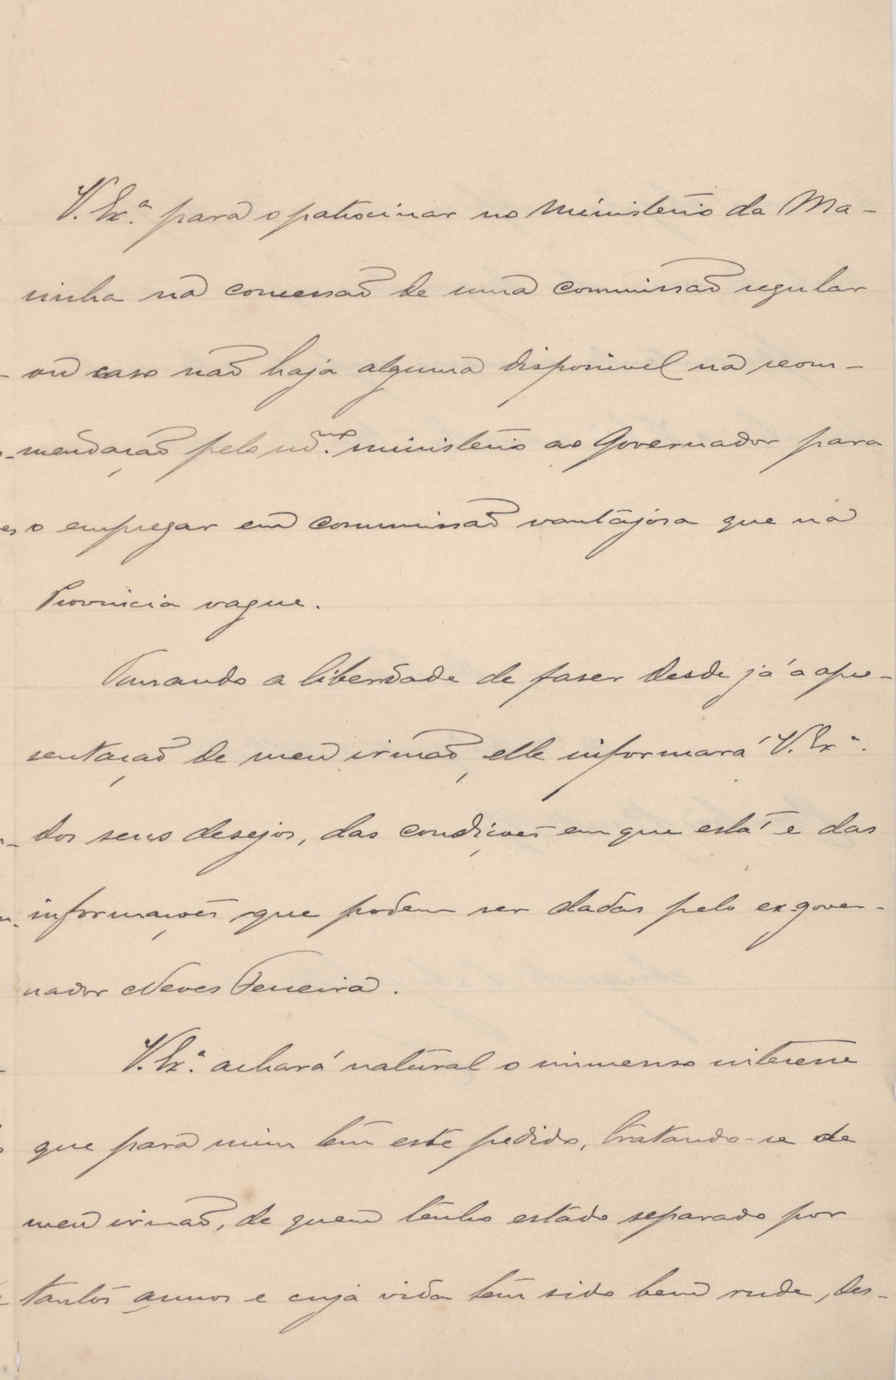 V. Ex.ª para o patrocinar no Ministerio da Ma-
rinha na concessão de uma commissão regular
ou caso não haja alguma disponivel na recom-
mendação pelo m.mo ministerio ao Governador para
o empregar em commissão vantajosa que na
Provincia vague.
Tomando a liberdade de faser desde já a apre-
sentação de meu irmão, elle informará V. Ex.ª
dos seus desejos, das condições em que está e das
informações que podem ser dadas pelo ex-gover-
nador Neves Ferreira.
V. Ex.ª achará natural o immenso interesse
que para mim tem este pedido, tratando-se de
meu irmão, de quem tenho estado separado por
tantos annos e cuja vida tem sido bem rude, des-